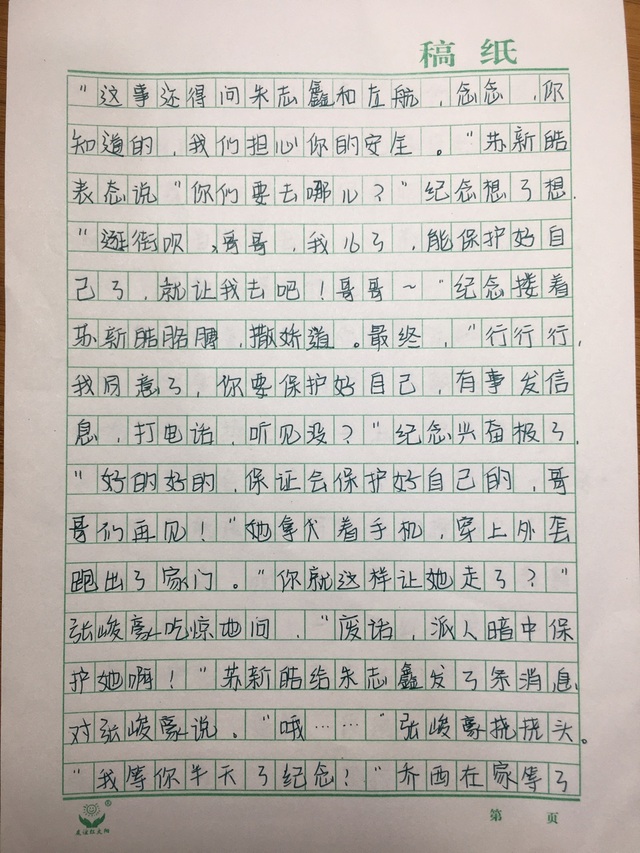 稿纸
"这事还得问朱志鑫和左航，念念，你
知道的，我们担心你的安全。"苏新皓
表态说"你们要去哪儿？"纪念想了想.
"逛街呗，哥哥，我儿了，能保护好自
己了，就让我去吧！哥哥～"纪念搂着
苏新皓胳膊，撒娇道。最终，"行行行，
我同意了，你要保护好自己，有事发信
息，打电话，听见没？"纪念兴奋极了
"好的好的，保证会保护好自己的，哥
哥们再见！"她拿着手机，穿上外套
跑出了家门。"你就这样让她走了？"
张峻豪吃惊地问，"废话，派人暗中保
护她啊！"苏新皓给朱志鑫发了条消息
对张峻豪说、"哦……"张峻豪挠挠头。
"我等你半天了纪念！"乔西在家等了
第 页